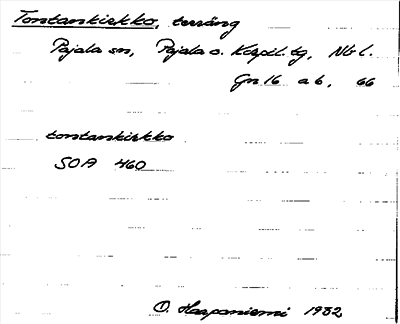 Tontankirkko, terräng
Pajala sn, Pajala o. Korpil. tg, Nb l.
Gn 16 a b, 66
tontankirkko
SOA 460
O. Haapaniemi 1932